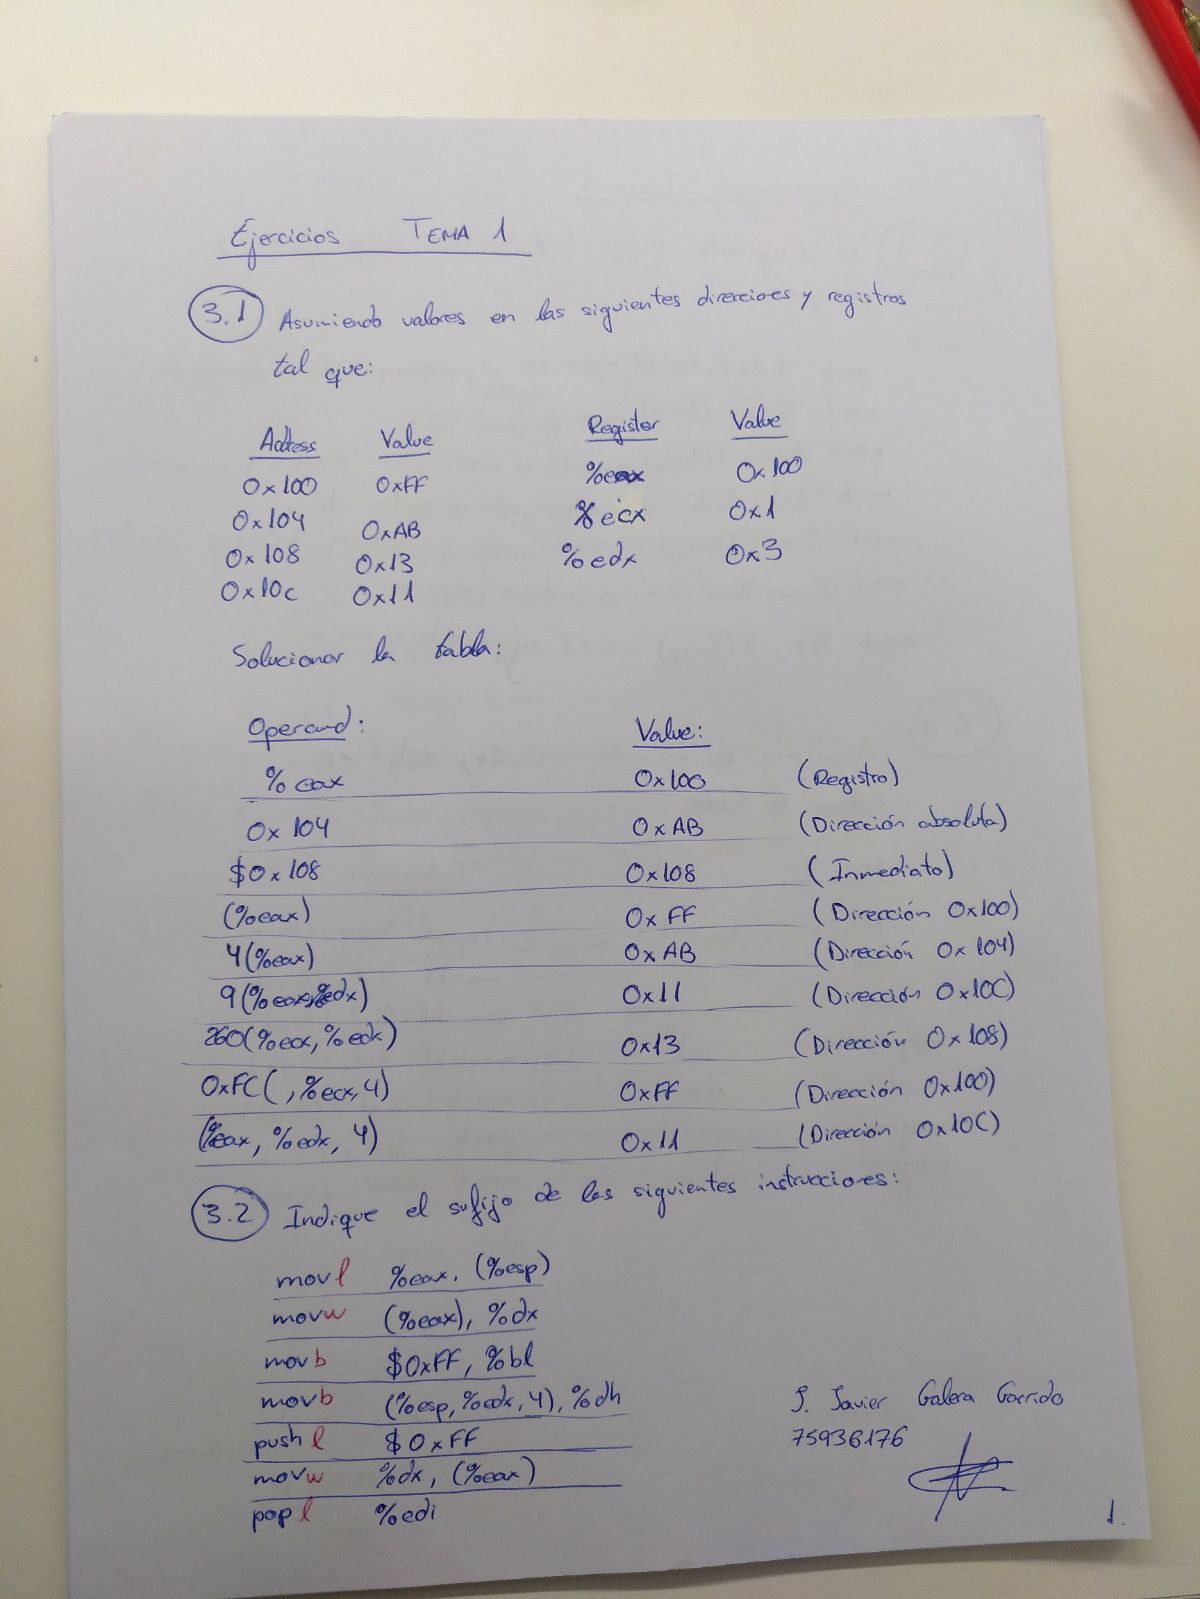 Ejercicios TEMA 1
3.1 Asumiendo valores en las siguientes direcciones y registros
tal que:
Address Value Register Value
0x100 0xFF %eax 0x100
0x104 0xAB %ecx 0x1
0x108 0x13 %edx 0x3
0x10c 0x11
Solucionar la tabla:
Operand: Value:
%eax 0x100 (Registro)
0x104 0xAB (Dirección absoluta)
$0x108 0x108 (Inmediato)
(%eax) 0xFF (Dirección 0x100)
4(%eax) 0xAB (Dirección 0x104)
9(%eax,%edx) 0x11 (Dirección 0x10C)
260(%ecx,%edx) 0x13 (Dirección 0x108)
0xFC(,%ecx,4) 0xFF (Dirección 0x100)
(%eax, %edx, 4) 0x11 (Dirección 0x10C)
3.2 Indique el sufijo de las siguientes instrucciones:
movl %eax, (%esp)
movw (%eax), %dx
movb $0xFF, %bl
movb (%esp, %edx, 4), %dh
pushl $0xFF
movw %dx, (%eax)
popl %edi
J. Javier Galera Garrido
75936176
1.